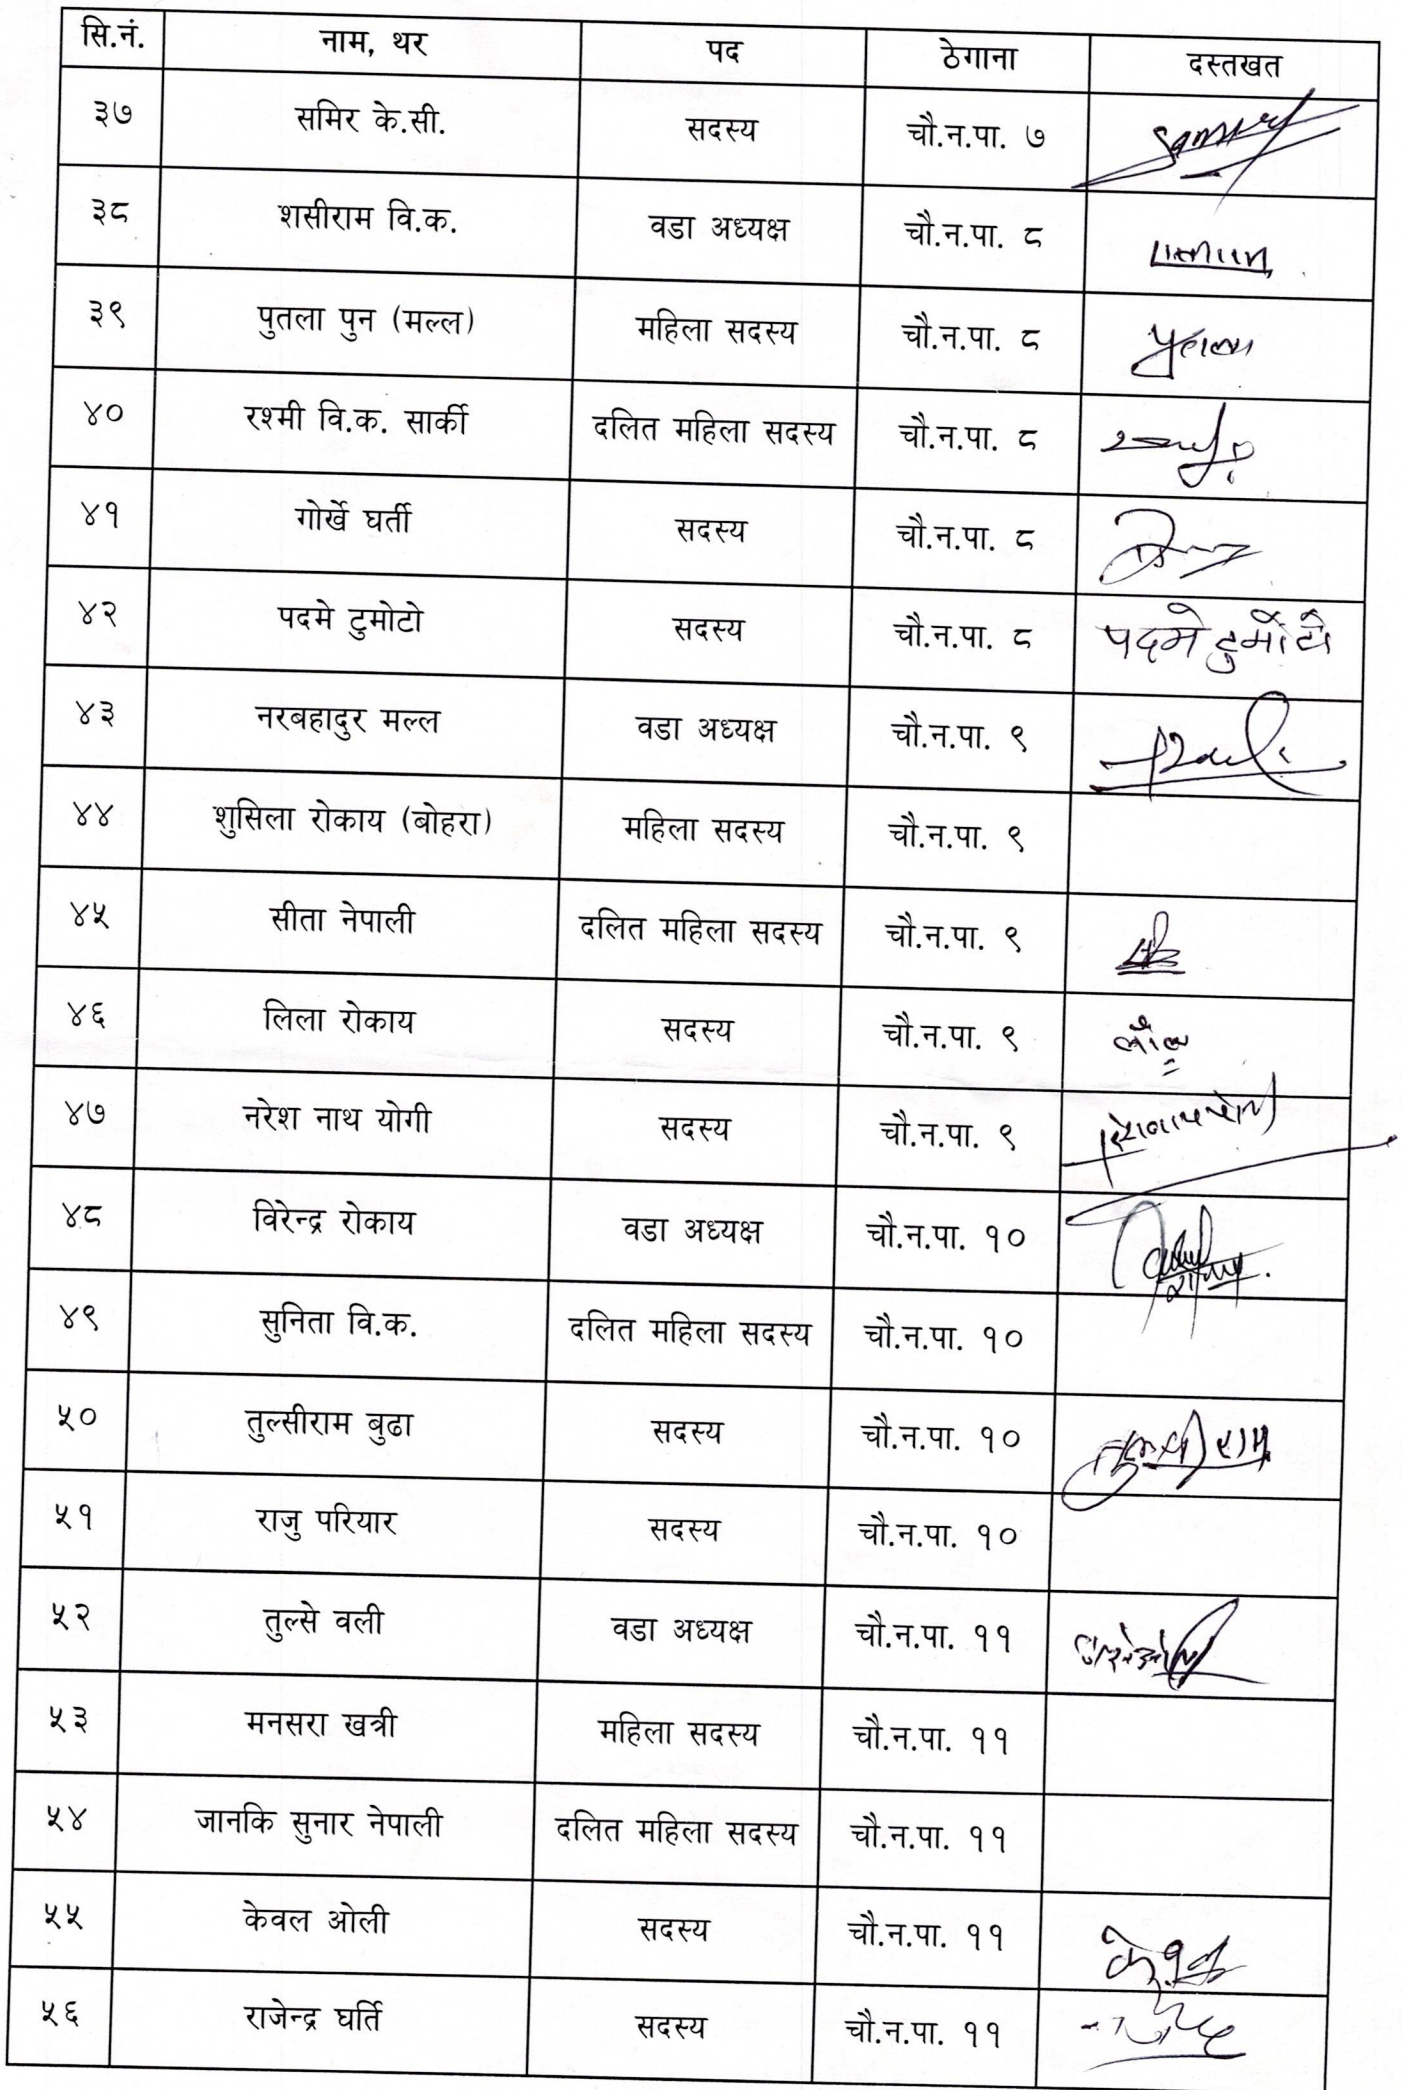 सि.नं. नाम, थर पद ठेगाना दस्तखत
३७ समिर के.सी. सदस्य चौ.न.पा. ७
३८ शसीराम वि.क. वडा अध्यक्ष चौ.न.पा. ८
३९ पुतला पुन (मल्ल) महिला सदस्य चौ.न.पा. ८ पुतला
४० रश्मी वि.क. सार्की दलित महिला सदस्य चौ.न.पा. ८
४१ गोर्खे घर्ती सदस्य चौ.न.पा. ८
४२ पदमे टुमोटो सदस्य चौ.न.पा. ८ पदमे टुमोटो
४३ नरबहादुर मल्ल वडा अध्यक्ष चौ.न.पा. ९
४४ शुसिला रोकाय (बोहरा) महिला सदस्य चौ.न.पा. ९
४५ सीता नेपाली दलित महिला सदस्य चौ.न.पा. ९
४६ लिला रोकाय सदस्य चौ.न.पा. ९
४७ नरेश नाथ योगी सदस्य चौ.न.पा. ९
४८ विरेन्द्र रोकाय वडा अध्यक्ष चौ.न.पा. १०
४९ सुनिता वि.क. दलित महिला सदस्य चौ.न.पा. १०
५० तुल्सीराम बुढा सदस्य चौ.न.पा. १०
५१ राजु परियार सदस्य चौ.न.पा. १०
५२ तुल्से वली वडा अध्यक्ष चौ.न.पा. ११
५३ मनसरा खत्री महिला सदस्य चौ.न.पा. ११
५४ जानकि सुनार नेपाली दलित महिला सदस्य चौ.न.पा. ११
५५ केवल ओली सदस्य चौ.न.पा. ११
५६ राजेन्द्र घर्ति सदस्य चौ.न.पा. ११